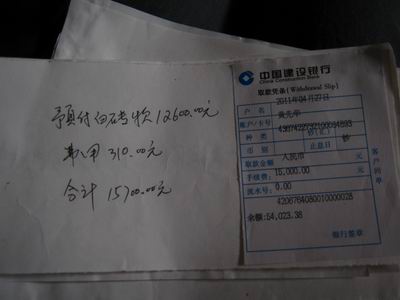 预付白砖款12600.00元
取用310.00元
合计15700.00元
中国建设银行
China Construction Bank
取款凭条(Withdrawal Slip)
2011年04月27日
户名
黄先华
账户/卡号
种类
钞(汇)
钞
币别
止息日
人民币
取款金额
元
15,000.00
手续费:
元
0.00
流水号:
4206764080010000028
余额:54,023.38
银行签章
客户回单